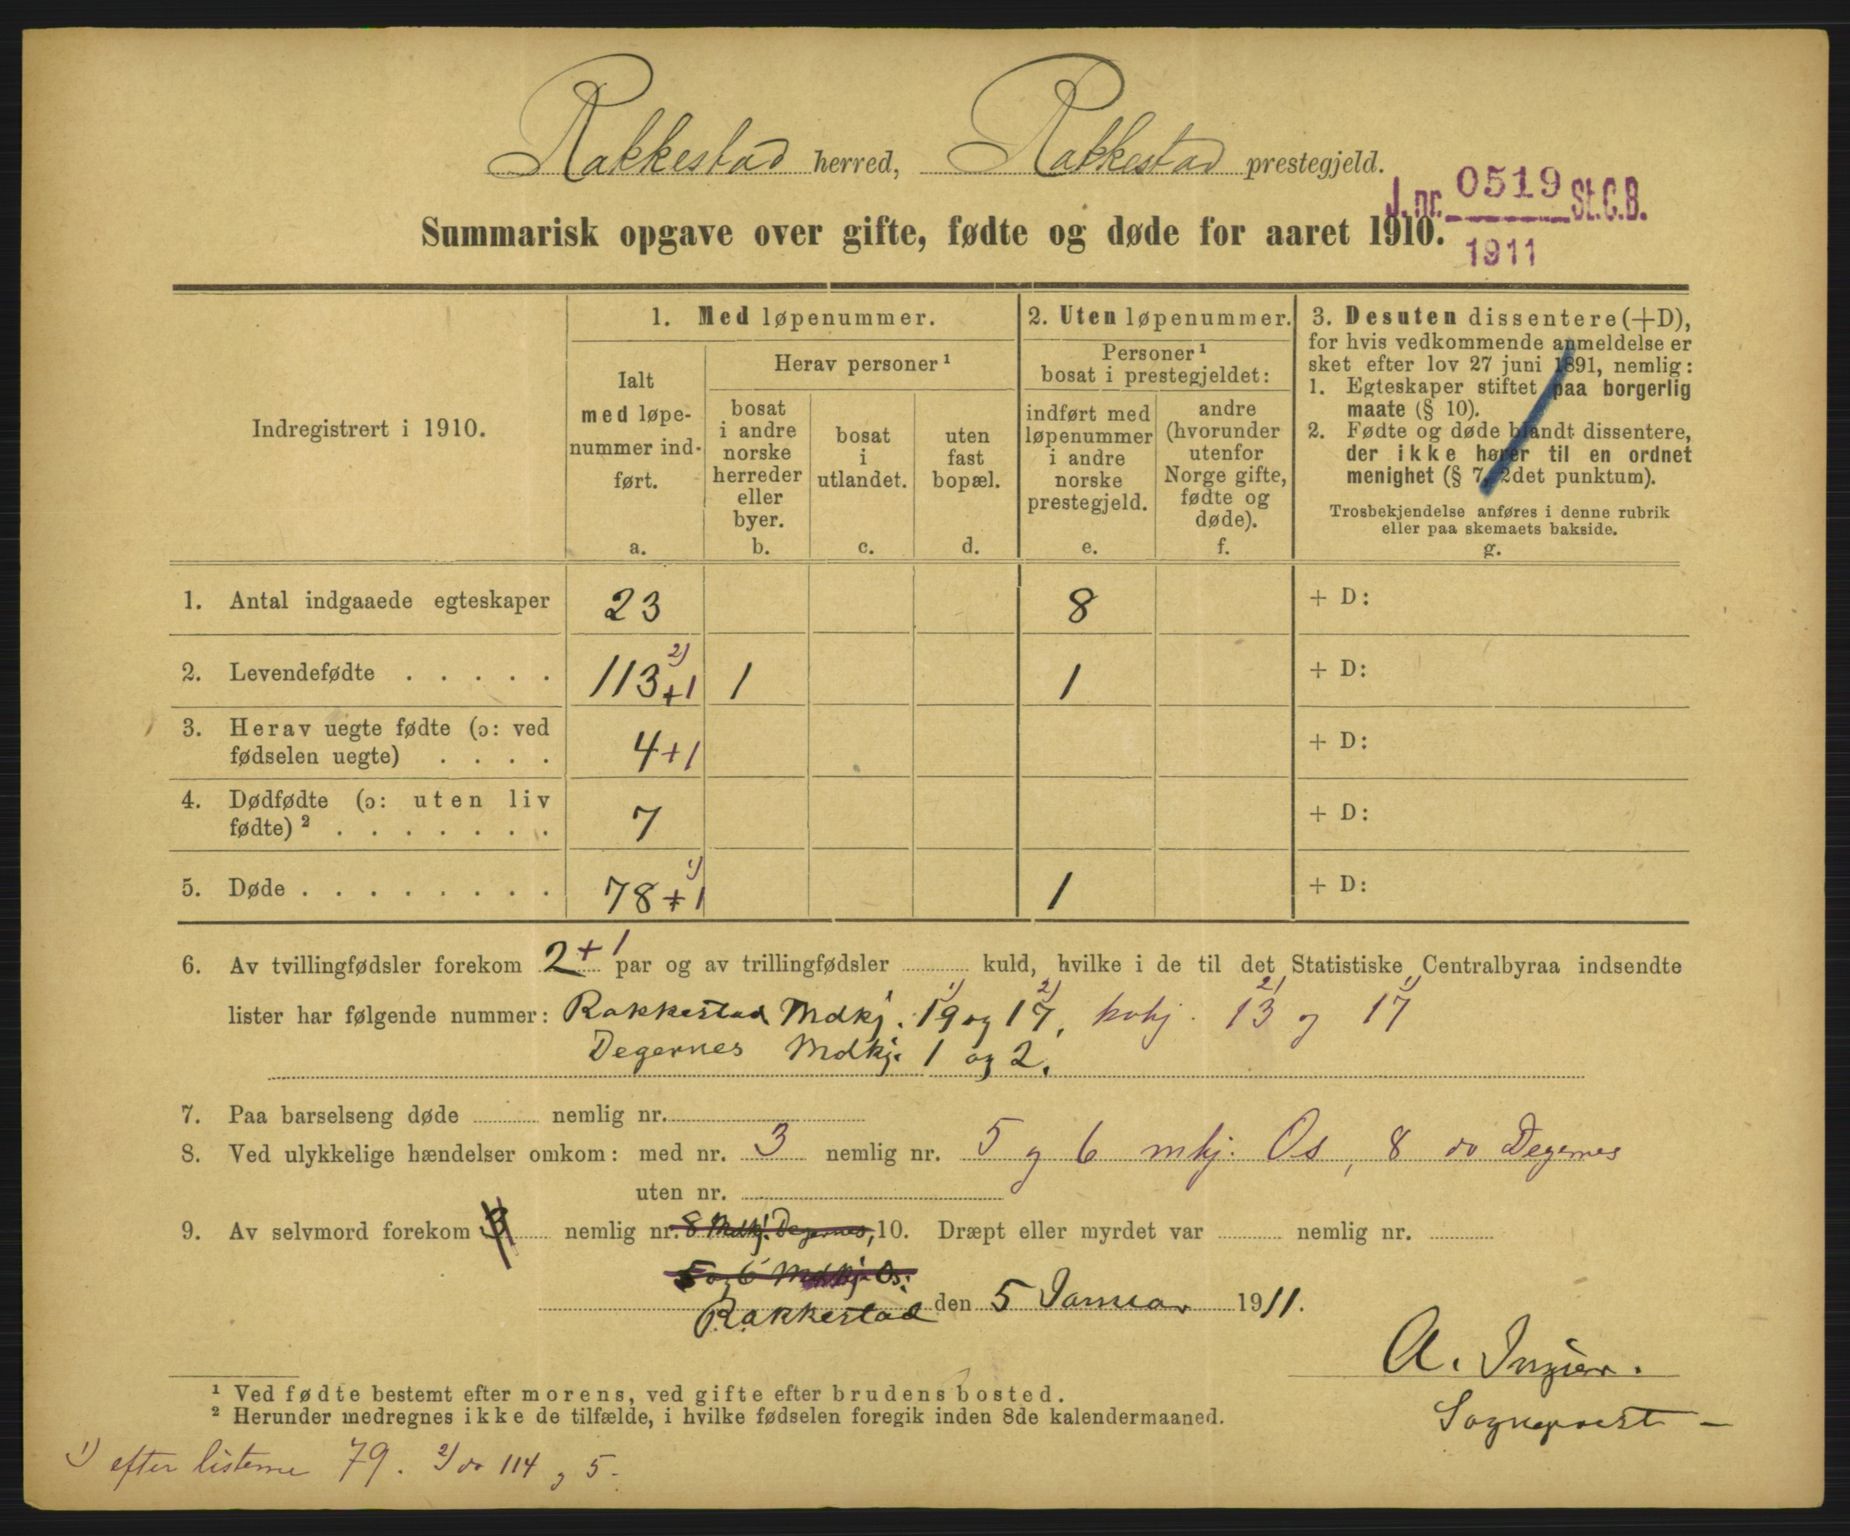 Rakkestad herred, Rakkestad prestegjeld.
J. nr. 0519 St.C.B.
1911
Summarisk opgave over gifte, fødte og døde for aaret 1910.
Indregistrert i 1910.
1. Med løpenummer.
Ialt
med løpe-
nummer ind-
ført.
a.
Herav personer ¹
bosat
i andre
norske
herreder
eller
byer.
b.
bosat
i
utlandet.
c.
uten
fast
bopæl.
d.
2. Uten løpenummer.
Personer ¹
bosat i prestegjeldet:
indført med
løpenummer
i andre
norske
prestegjeld.
e.
andre
(hvorunder
utenfor
Norge gifte,
fødte og
døde).
f.
3. Desuten dissentere (+D),
for hvis vedkommende anmeldelse er
sket efter lov 27 juni 1891, nemlig:
1. Egteskaper stiftet paa borgerlig
maate (§ 10).
2. Fødte og døde blandt dissentere,
der ikke hører til en ordnet
menighet (§ 7, 2det punktum).
Trosbekjendelse anføres i denne rubrik
eller paa skemaets bakside.
g.
1. Antal indgaaede egteskaper 23 8 + D:
2. Levendefødte . . . . . 113 +1 2) 1 1 + D:
3. Herav uegte fødte (ɔ: ved
fødselen uegte) . . . . 4+1 + D:
4. Dødfødte (ɔ: uten liv
fødte) ² . . . . . . . 7 + D:
5. Døde . . . . . . . . 78 +1 1) 1 + D:
6. Av tvillingfødsler forekom 2 +1 par og av trillingfødsler kuld, hvilke i de til det Statistiske Centralbyraa indsendte
lister har følgende nummer: Rakkestad Mdkj. 19 1) og 17 2), kvkj. 13 2) og 17 1)
Degernes Mdkj. 1 og 2.
7. Paa barselseng døde nemlig nr.
8. Ved ulykkelige hændelser omkom: med nr. 3 nemlig nr. 5 og 6 mkj. Os, 8 do Degernes
uten nr.
9. Av selvmord forekom 3 nemlig nr. 8 Mdkj. Degernes, 10. Dræpt eller myrdet var nemlig nr.
5 og 6 Mdkj. Os.
Rakkestad den 5 Januar 1911.
A.
Sogneprest
¹ Ved fødte bestemt efter morens, ved gifte efter brudens bosted.
² Herunder medregnes ikke de tilfælde, i hvilke fødselen foregik inden 8de kalendermaaned.
1) efter listerne 79. 2) do 114 og 5.